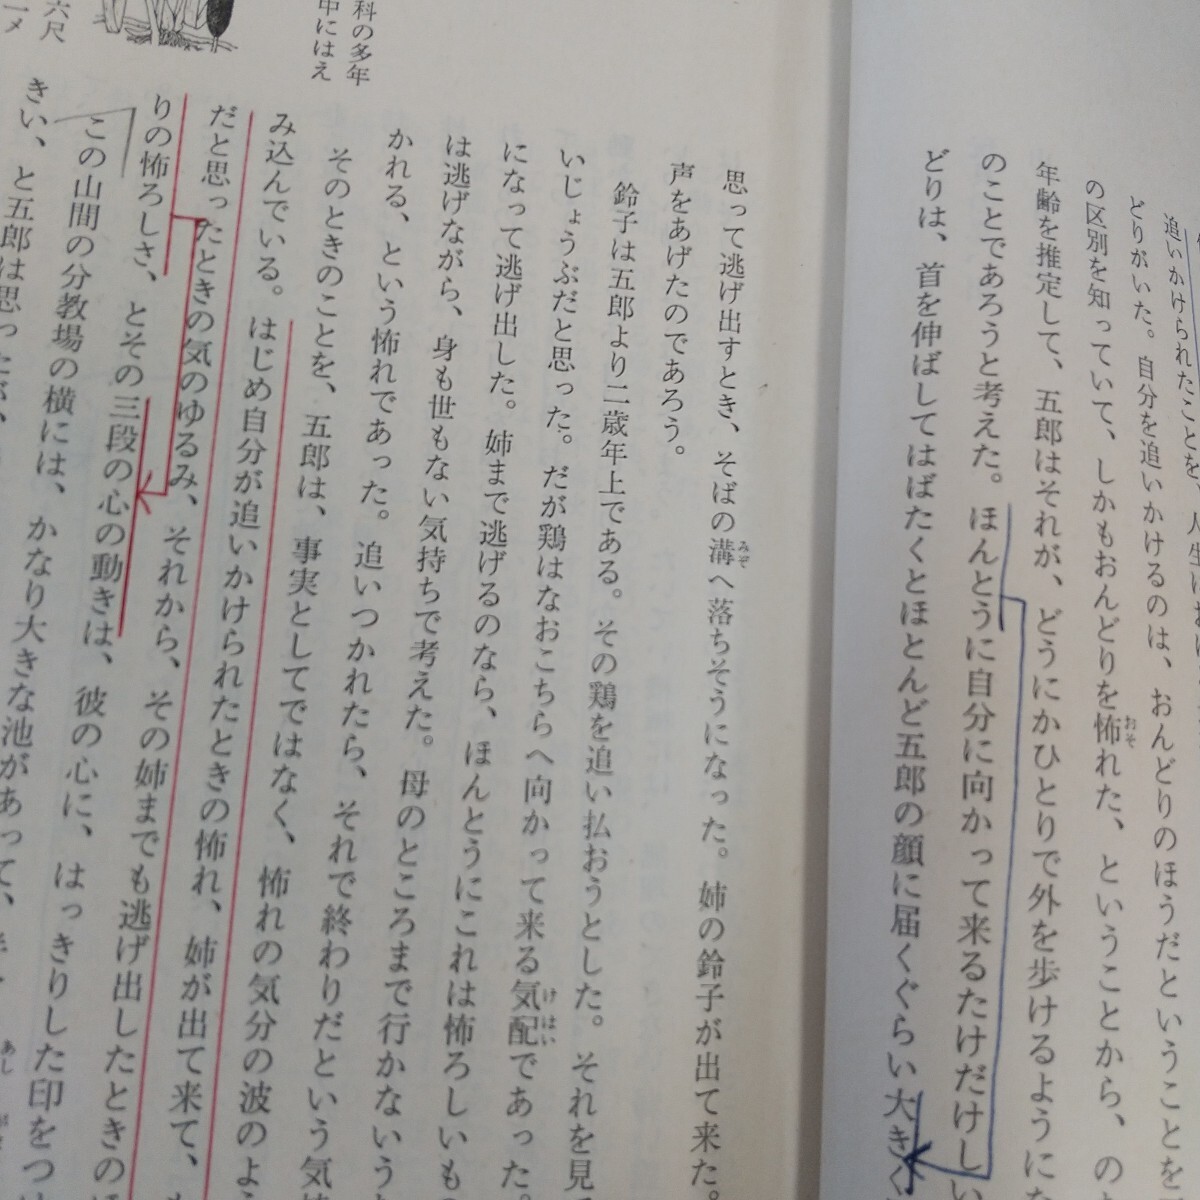 追いかけられたことを、人生にお
どりがいた。自分を追いかけるのは、おんどりのほうだということを
の区別を知っていて、しかもおんどりを怖れた、ということから、の
おそ
年齢を推定して、五郎はそれが、どうにかひとりで外を歩けるようにな
のことであろうと考えた。ほんとうに自分に向かって来るたけだけしい
どりは、首を伸ばしてはばたくとほとんど五郎の顔に届くぐらい大きく
思って逃げ出すとき、そばの溝へ落ちそうになった。姉の鈴子が出て来た。
みぞ
声をあげたのであろう。
鈴子は五郎より二歳年上である。その鶏を追い払おうとした。それを見て
いじょうぶだと思った。だが鶏はなおこちらへ向かって来る気配であった。
けはい
になって逃げ出した。姉まで逃げるのなら、ほんとうにこれは怖ろしいも
は逃げながら、身も世もない気持ちで考えた。母のところまで行かないう
かれる、という怖れであった。追いつかれたら、それで終わりだという気
そのときのことを、五郎は、事実としてではなく、怖れの気分の波のよ
み込んでいる。はじめ自分が追いかけられたときの怖れ、姉が出て来て、
だと思ったときの気のゆるみ、それから、その姉までも逃げ出したときの
りの怖ろしさ、とその三段の心の動きは、彼の心に、はっきりした印をつ
この山間の分教場の横には、かなり大きな池があって、
きい、と五郎は思ったが、
あし
科の多年
中にはえ
六尺
一メ